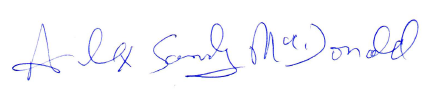 Alex Sandy McDonald